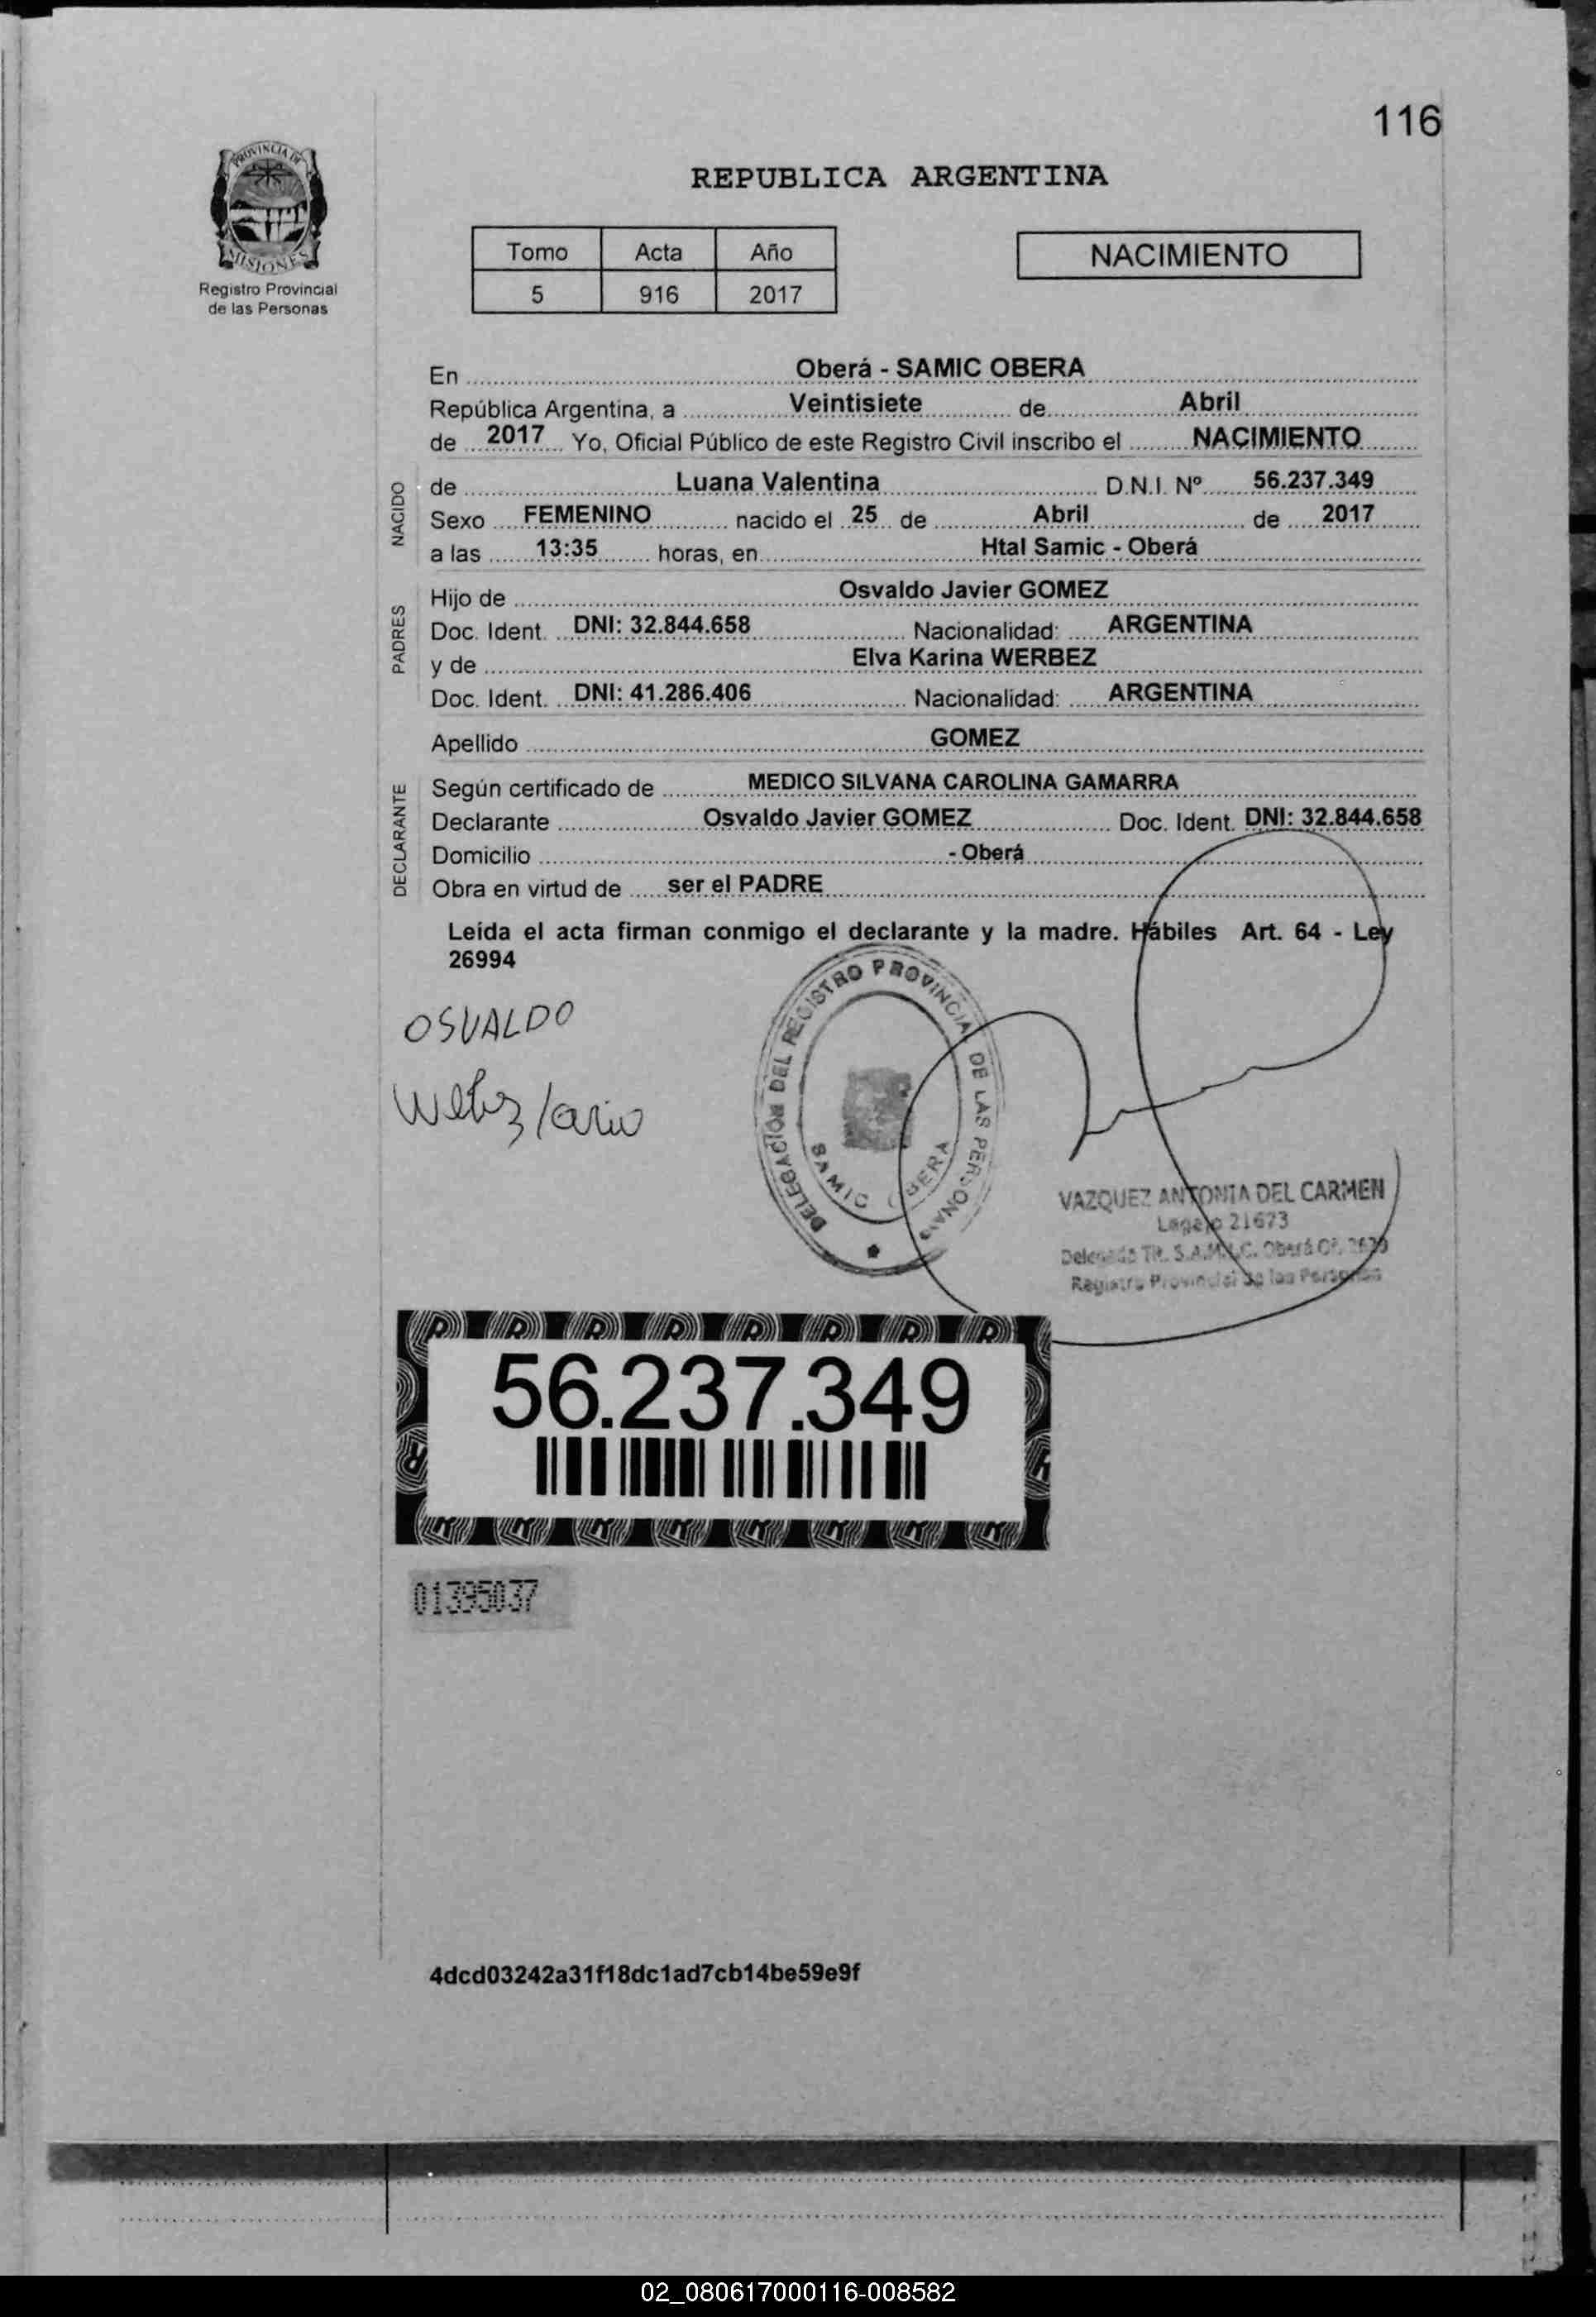 116
PROVINCIA DE
MISIONES
Registro Provincial
de las Personas
REPUBLICA ARGENTINA
Tomo Acta Año
5 916 2017
NACIMIENTO
En Oberá - SAMIC OBERA
República Argentina, a Veintisiete de Abril
de 2017 Yo, Oficial Público de este Registro Civil inscribo el NACIMIENTO
NACIDO
de Luana Valentina D.N.I. Nº 56.237.349
Sexo FEMENINO nacido el 25 de Abril de 2017
a las 13:35 horas, en Htal Samic - Oberá
PADRES
Hijo de Osvaldo Javier GOMEZ
Doc. Ident. DNI: 32.844.658 Nacionalidad: ARGENTINA
y de Elva Karina WERBEZ
Doc. Ident. DNI: 41.286.406 Nacionalidad: ARGENTINA
Apellido GOMEZ
DECLARANTE
Según certificado de MEDICO SILVANA CAROLINA GAMARRA
Declarante Osvaldo Javier GOMEZ Doc. Ident. DNI: 32.844.658
Domicilio - Oberá
Obra en virtud de ser el PADRE
Leída el acta firman conmigo el declarante y la madre. Hábiles Art. 64 - Ley
26994
OSVALDO
DELEGACIÓN DEL REGISTRO PROVINCIAL DE LAS PERSONAS
SAMIC OBERA
VAZQUEZ ANTONIA DEL CARMEN
Legajo 21673
S.A.M.I.C. Oberá
Registro Provincial de las Personas
56.237.349
01395037
4dcd03242a31f18dc1ad7cb14be59e9f
02_080617000116-008582